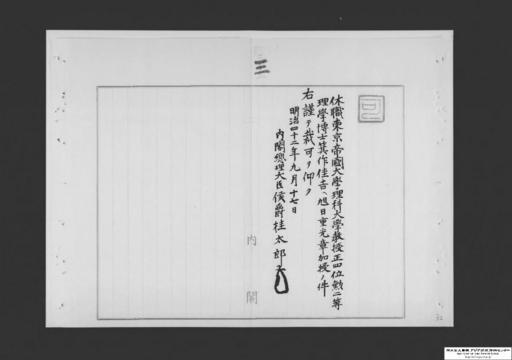 三
休職東京帝國大學理科大學教授正四位勲二等
理學博士箕作佳吉ヘ旭日重光章加授ノ件
右謹テ裁可ヲ仰ク
明治四十二年九月十七日
内閣總理大臣侯爵桂太郎
内閣